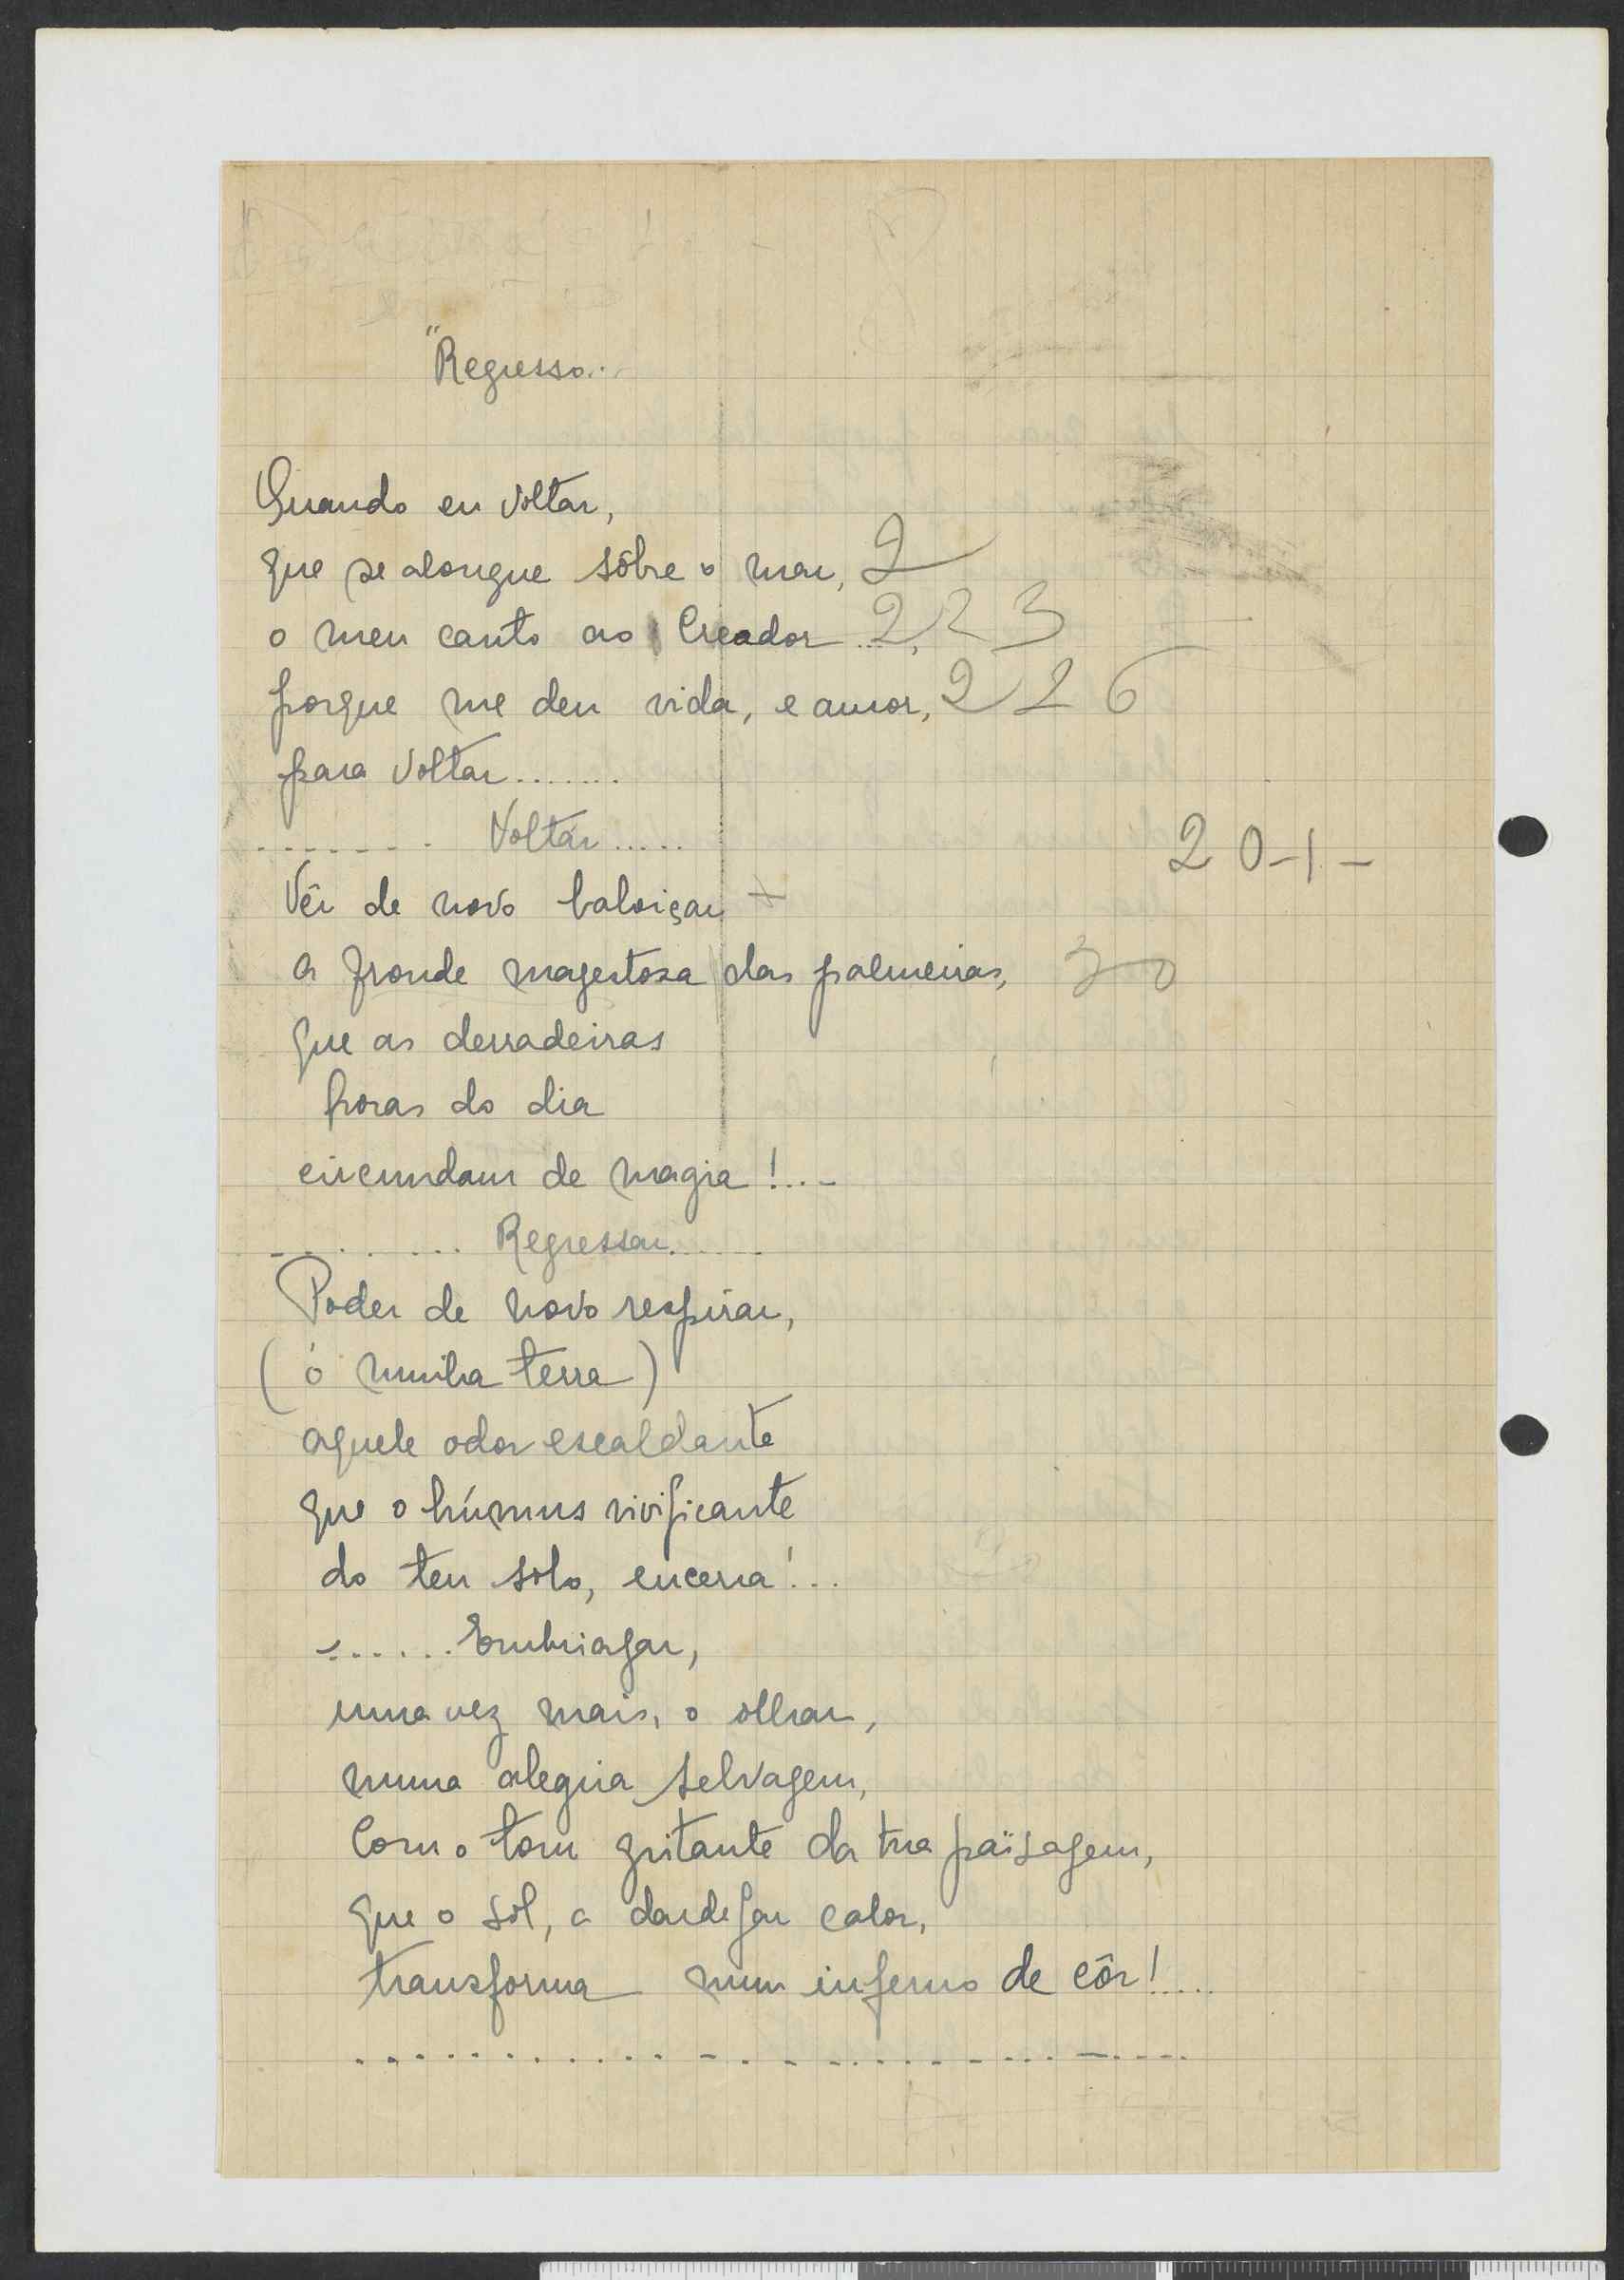 "Regresso..
Quando eu voltar,
que se alongue sôbre o mar, 2
o meu canto ao Creador...., 223
porque me deu vida, e amor, 226
para voltar.......
....... Voltar.....
20-1-
Vêr de novo baloiçar +
a fronde magestosa das palmeiras, 30
que as derradeiras
horas do dia
circundam de magia!...
........ Regressar......
Poder de novo respirar,
(ó minha terra)
aquele odor escaldante
que o húmus vivificante
do teu solo, encerra!...
....... Embriagar,
uma vez mais, o olhar,
numa alegria selvagem,
Com o tom gritante da tua païsagem,
que o sol, a dardejar calor,
transforma num inferno de côr!.....
..............................